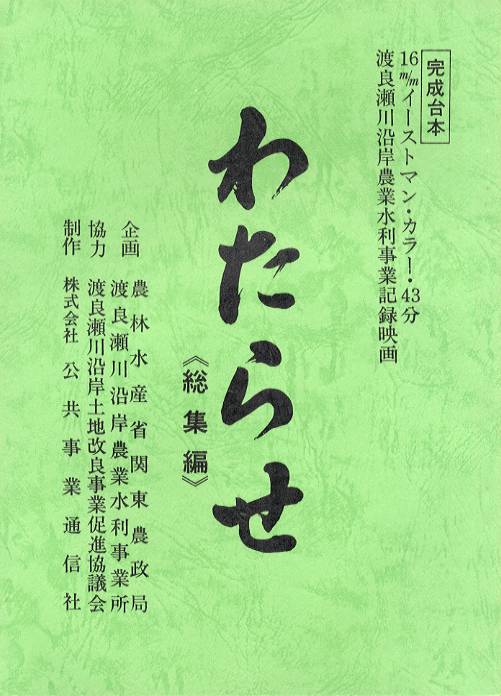 完成台本
16m/mイーストマン・カラー・43分
渡良瀬川沿岸農業水利事業記録映画
わたらせ
《総集編》
企画 農林水産省関東農政局
渡良瀬川沿岸農業水利事業所
協力 渡良瀬川沿岸土地改良事業促進協議会
制作 株式会社 公共事業通信社